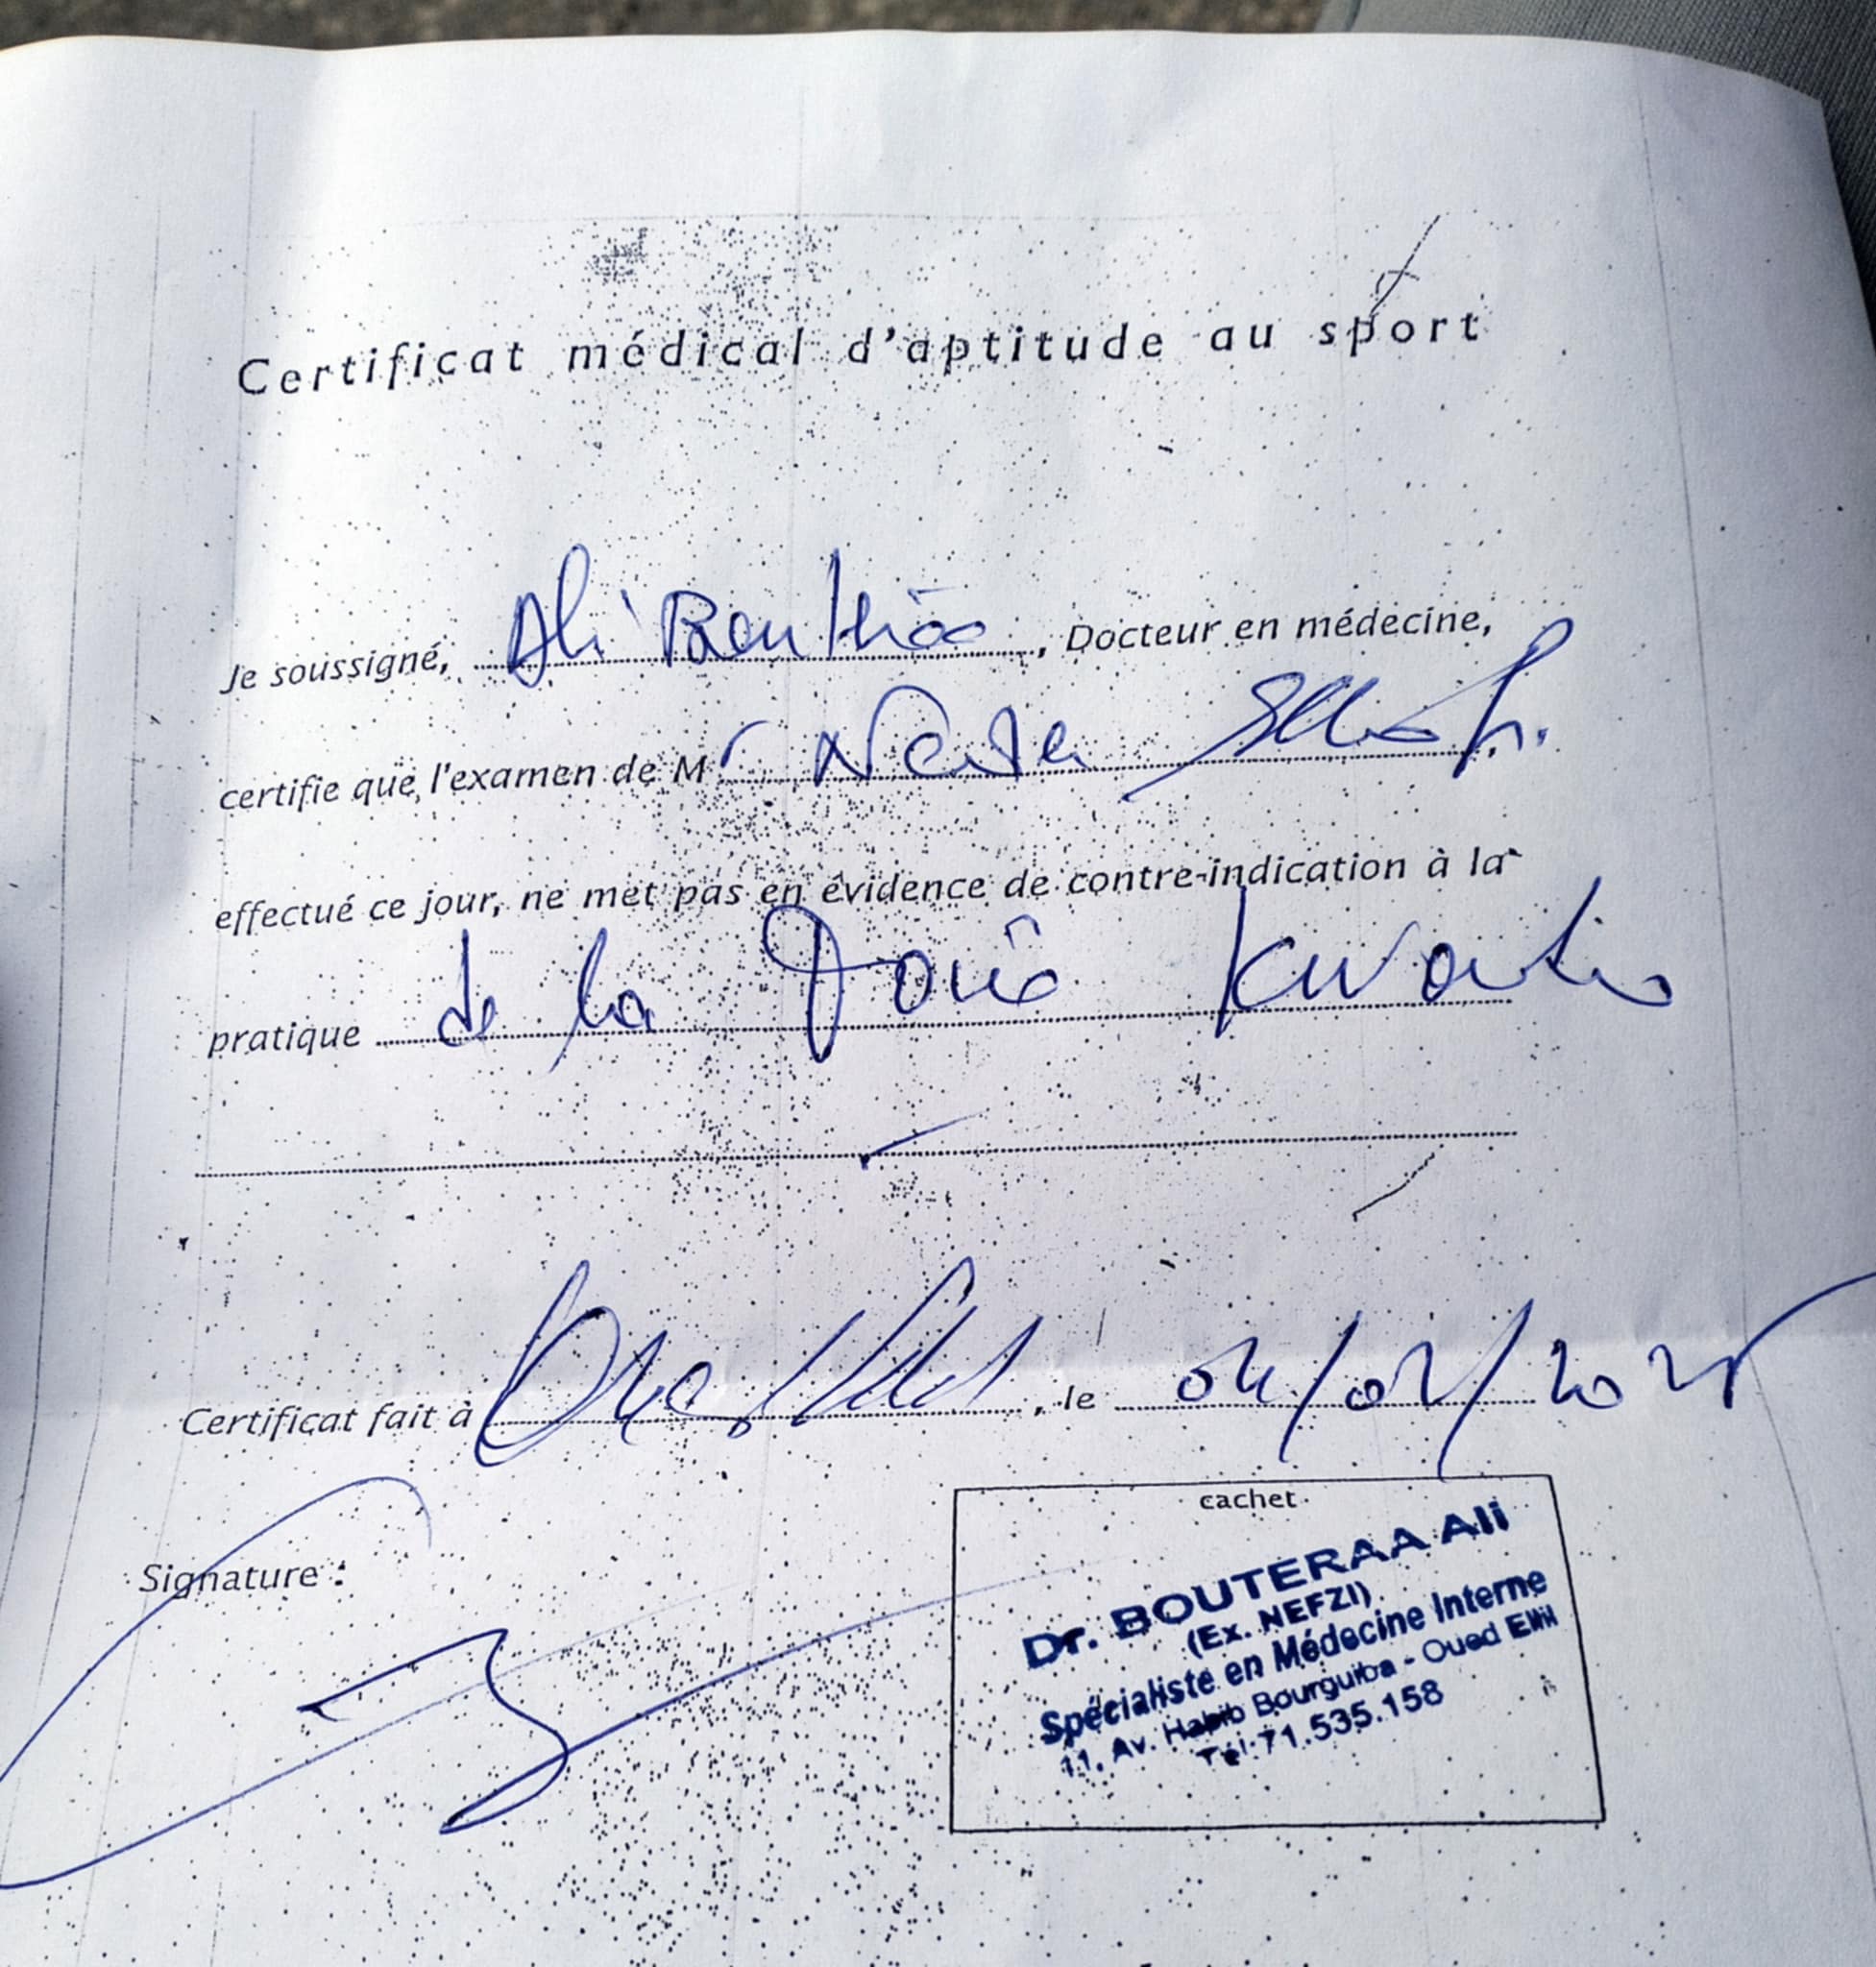 Certificat médical d'aptitude au sport
Je soussigné, Ali Bouteraa, Docteur en médecine,
certifie que l'examen de Mr
effectué ce jour, ne met pas en évidence de contre-indication à la
pratique de la
Certificat fait à Oued Ellil, le 04/02/2025
cachet
Signature :
Dr. BOUTERAA Ali
(Ex. NEFZI)
Spécialiste en Médecine Interne
11, Av. Habib Bourguiba - Oued Ellil
Tél: 71.535.158